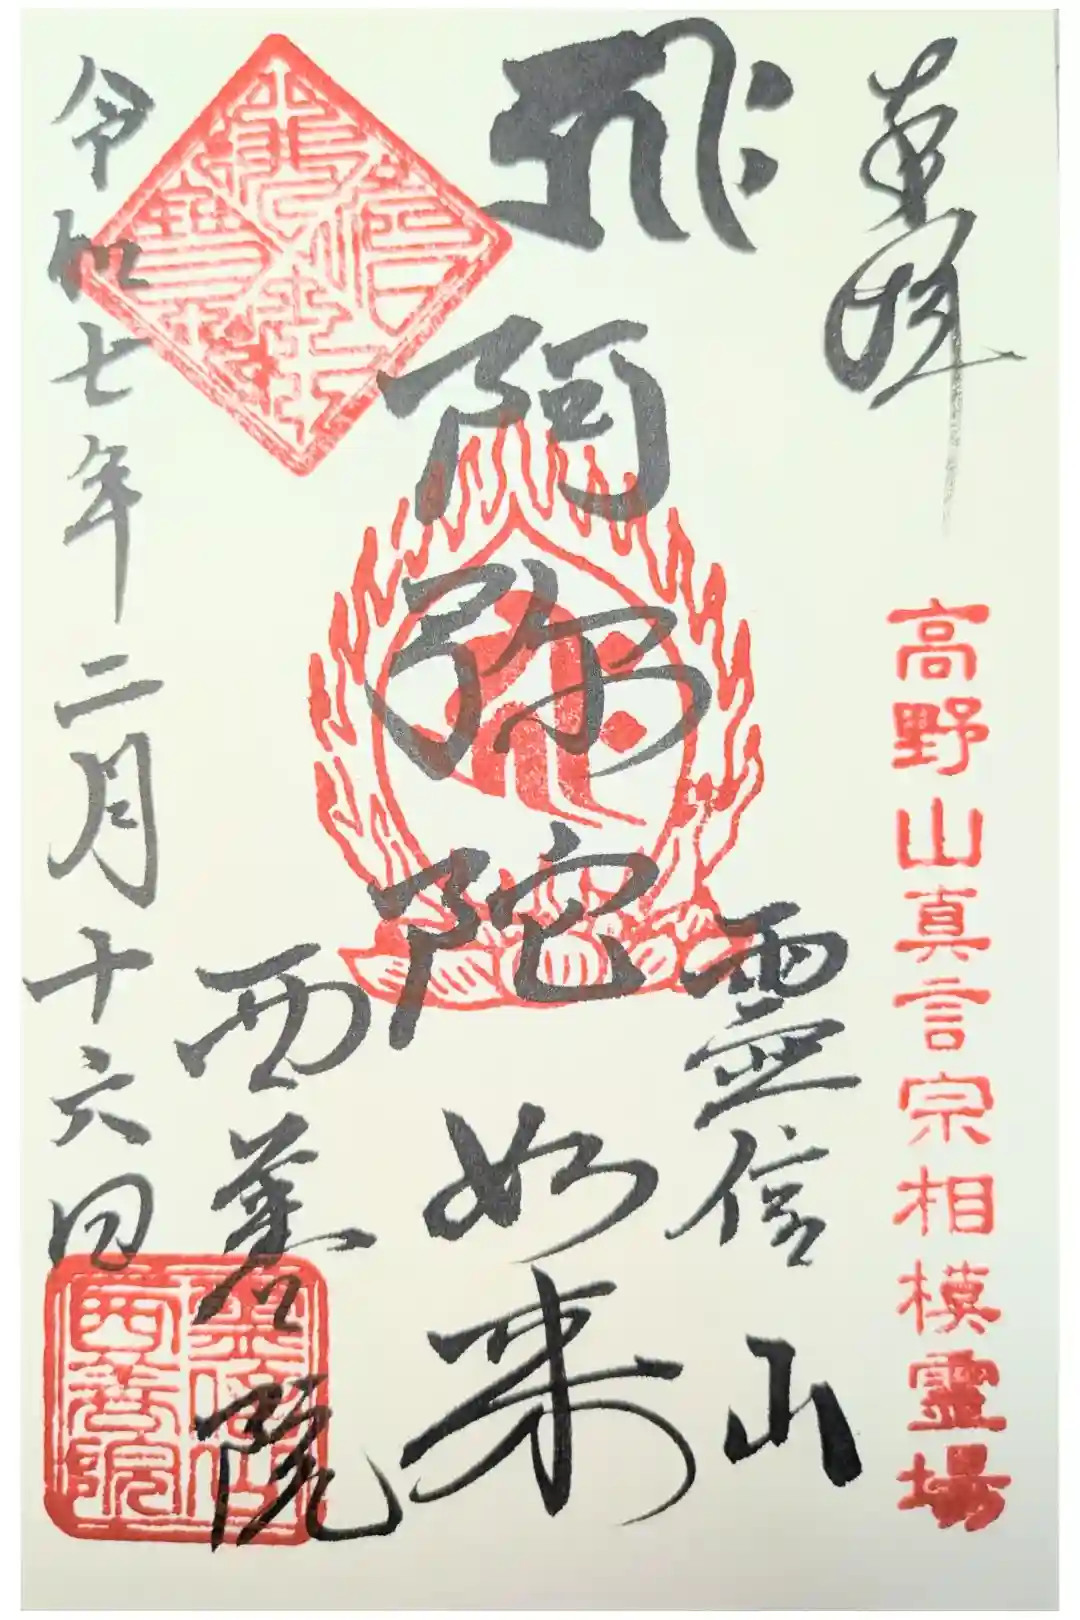 奉拝
高野山真言宗相模霊場
霊信山
阿弥陀如来
西善院
令和七年二月十六日
霊信山
西善院